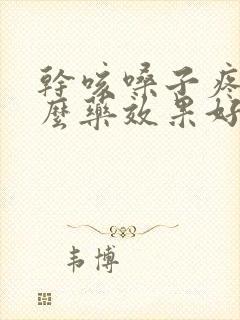 幹咳嗓子疼
麼藥效果好
韦博